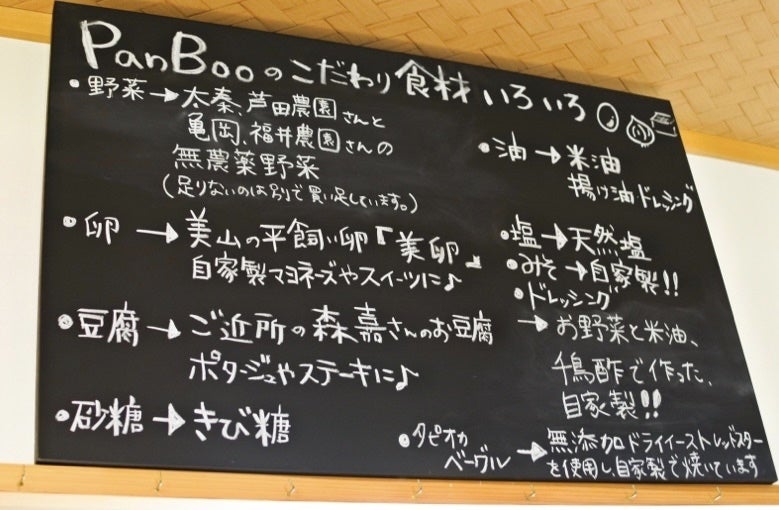 PanBooのこだわり食材いろいろ
・野菜→太秦、芦田農園さんと
亀岡、福井農園さんの
無農薬野菜
(足りないのは別で買い足しています。)
・卵→美山の平飼い卵『美卵』
自家製マヨネーズやスイーツに♪
・豆腐→ご近所の森嘉さんのお豆腐
ポタージュやステーキに♪
・砂糖→きび糖
・油→米油
揚げ油ドレッシング
・塩→天然塩
・みそ→自家製!!
・ドレッシング
→お野菜と米油、
千鳥酢で作った、
自家製!!
・タピオカ
ベーグル→無添加ドライイーストレッドスター
を使用し、自家製で焼いています